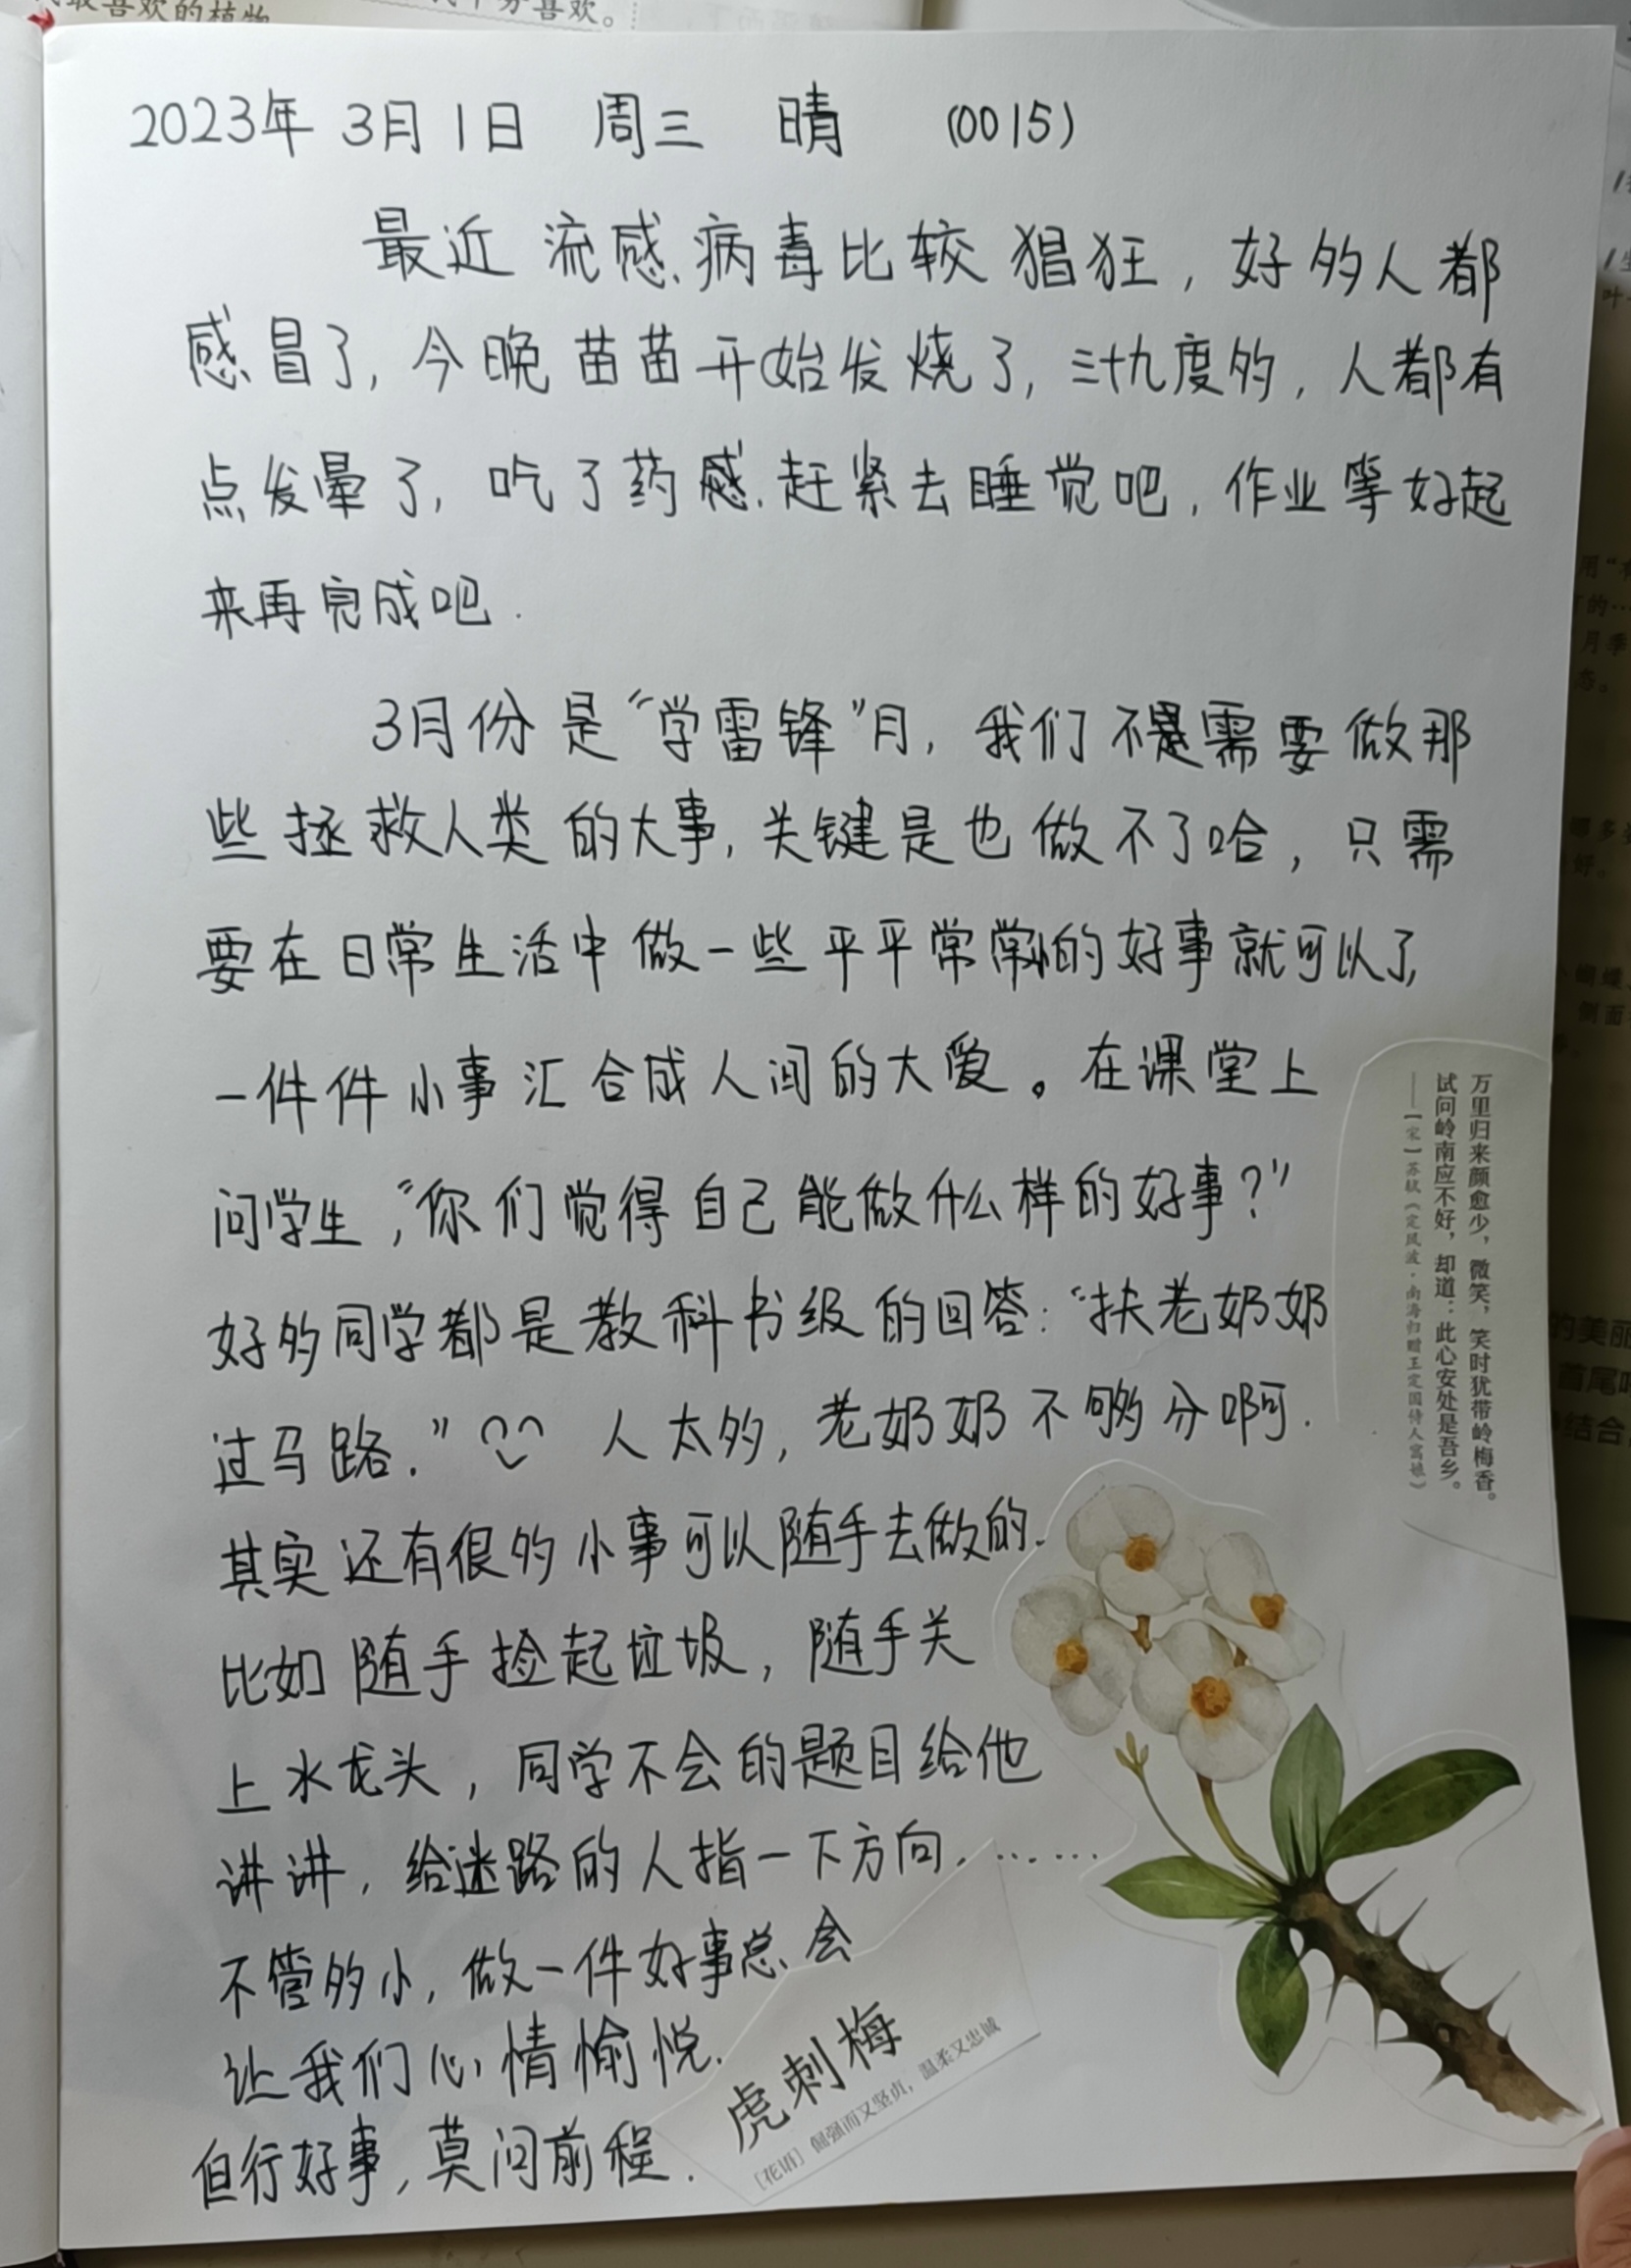 2023年 3月1日 周三 晴 (0015)
最近流感病毒比较猖狂，好多人都
感冒了，今晚苗苗开始发烧了，三十九度多，人都有
点发晕了，吃了药感赶紧去睡觉吧，作业等好起
来再完成吧.
3月份是“学雷锋”月，我们不是需要做那
些拯救人类的大事，关键是也做不了哈，只需
要在日常生活中做一些平平常常的好事就可以了，
一件件小事汇合成人间的大爱。在课堂上
问学生，“你们觉得自己能做什么样的好事？”
好多同学都是教科书级的回答：“扶老奶奶
过马路.” 人太多，老奶奶不够分啊.
其实还有很多小事可以随手去做的.
比如随手捡起垃圾，随手关
上水龙头，同学不会的题目给他
讲讲，给迷路的人指一下方向.……
不管多小，做一件好事总会
让我们心情愉悦.
但行好事，莫问前程.
万里归来颜愈少，微笑，笑时犹带岭梅香。
试问岭南应不好，却道：此心安处是吾乡。
——［宋］苏轼《定风波·南海归赠王定国侍人寓娘》
虎刺梅
［花语］倔强而又坚贞，温柔又忠诚
最喜欢的植物
分喜欢。